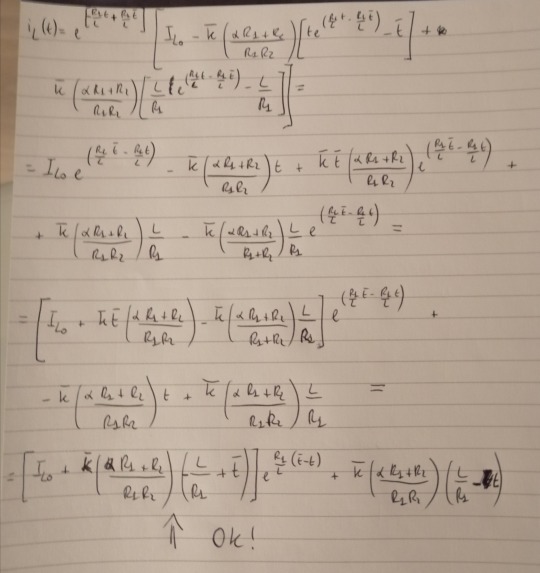 i_L(t) = e^[R1/L t + R1/L t̄] [I_L0 - k̄ (αR1+R2 / R1R2) [te^(R1/L t - R1/L t̄) - t̄] +
k̄ (αR1+R2 / R1R2) [L/R1 e^(R1/L t - R1/L t̄) - L/R1]] =
= I_L0 e^(R1/L t̄ - R1/L t) - k̄ (αR1+R2 / R1R2) t + k̄ t̄ (αR1+R2 / R1R2) e^(R1/L t̄ - R1/L t) +
+ k̄ (αR1+R2 / R1R2) L/R1 - k̄ (αR1+R2 / R1+R2) L/R1 e^(R1/L t̄ - R1/L t) =
= [I_L0 + k̄ t̄ (αR1+R2 / R1R2) - k̄ (αR1+R2 / R1+R2) L/R1] e^(R1/L t̄ - R1/L t) +
- k̄ (αR1+R2 / R1R2) t + k̄ (αR1+R2 / R1R2) L/R1 =
= [I_L0 + k̄ (αR1+R2 / R1R2) (L/R1 + t̄)] e^R1/L (t̄-t) + k̄ (αR1+R2 / R1R2) (L/R1 - t)
↑ OK!